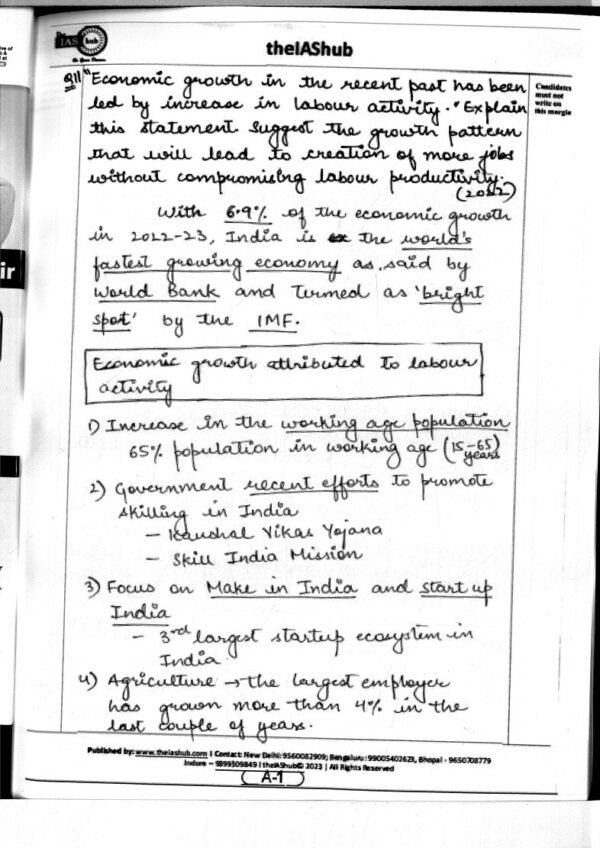 IAS hub
theIAShub
Q11 "Economic growth in the recent past has been
led by increase in labour activity." Explain
this statement. Suggest the growth pattern
that will lead to creation of more jobs
without compromising labour productivity.
(2022)
Candidates
must not
write on
this margin
With 6.9% of the economic growth
in 2022-23, India is the world's
fastest growing economy as said by
World Bank and termed as 'bright
spot' by the IMF.
Economic growth attributed to labour
activity
1) Increase in the working age population
65% population in working age (15-65)
years
2) Government recent efforts to promote
skilling in India
- Kaushal Vikas Yojana
- Skill India Mission
3) Focus on Make in India and start up
India
- 3rd largest startup ecosystem in
India
4) Agriculture → the largest employer
has grown more than 4% in the
last couple of years.
Published by: www.theiashub.com | Contact: New Delhi: 9560082909; Bengaluru: 99005402623, Bhopal - 9650708779
Indore - 9899509849 | theIAShub© 2023 | All Rights Reserved
A-1
ir